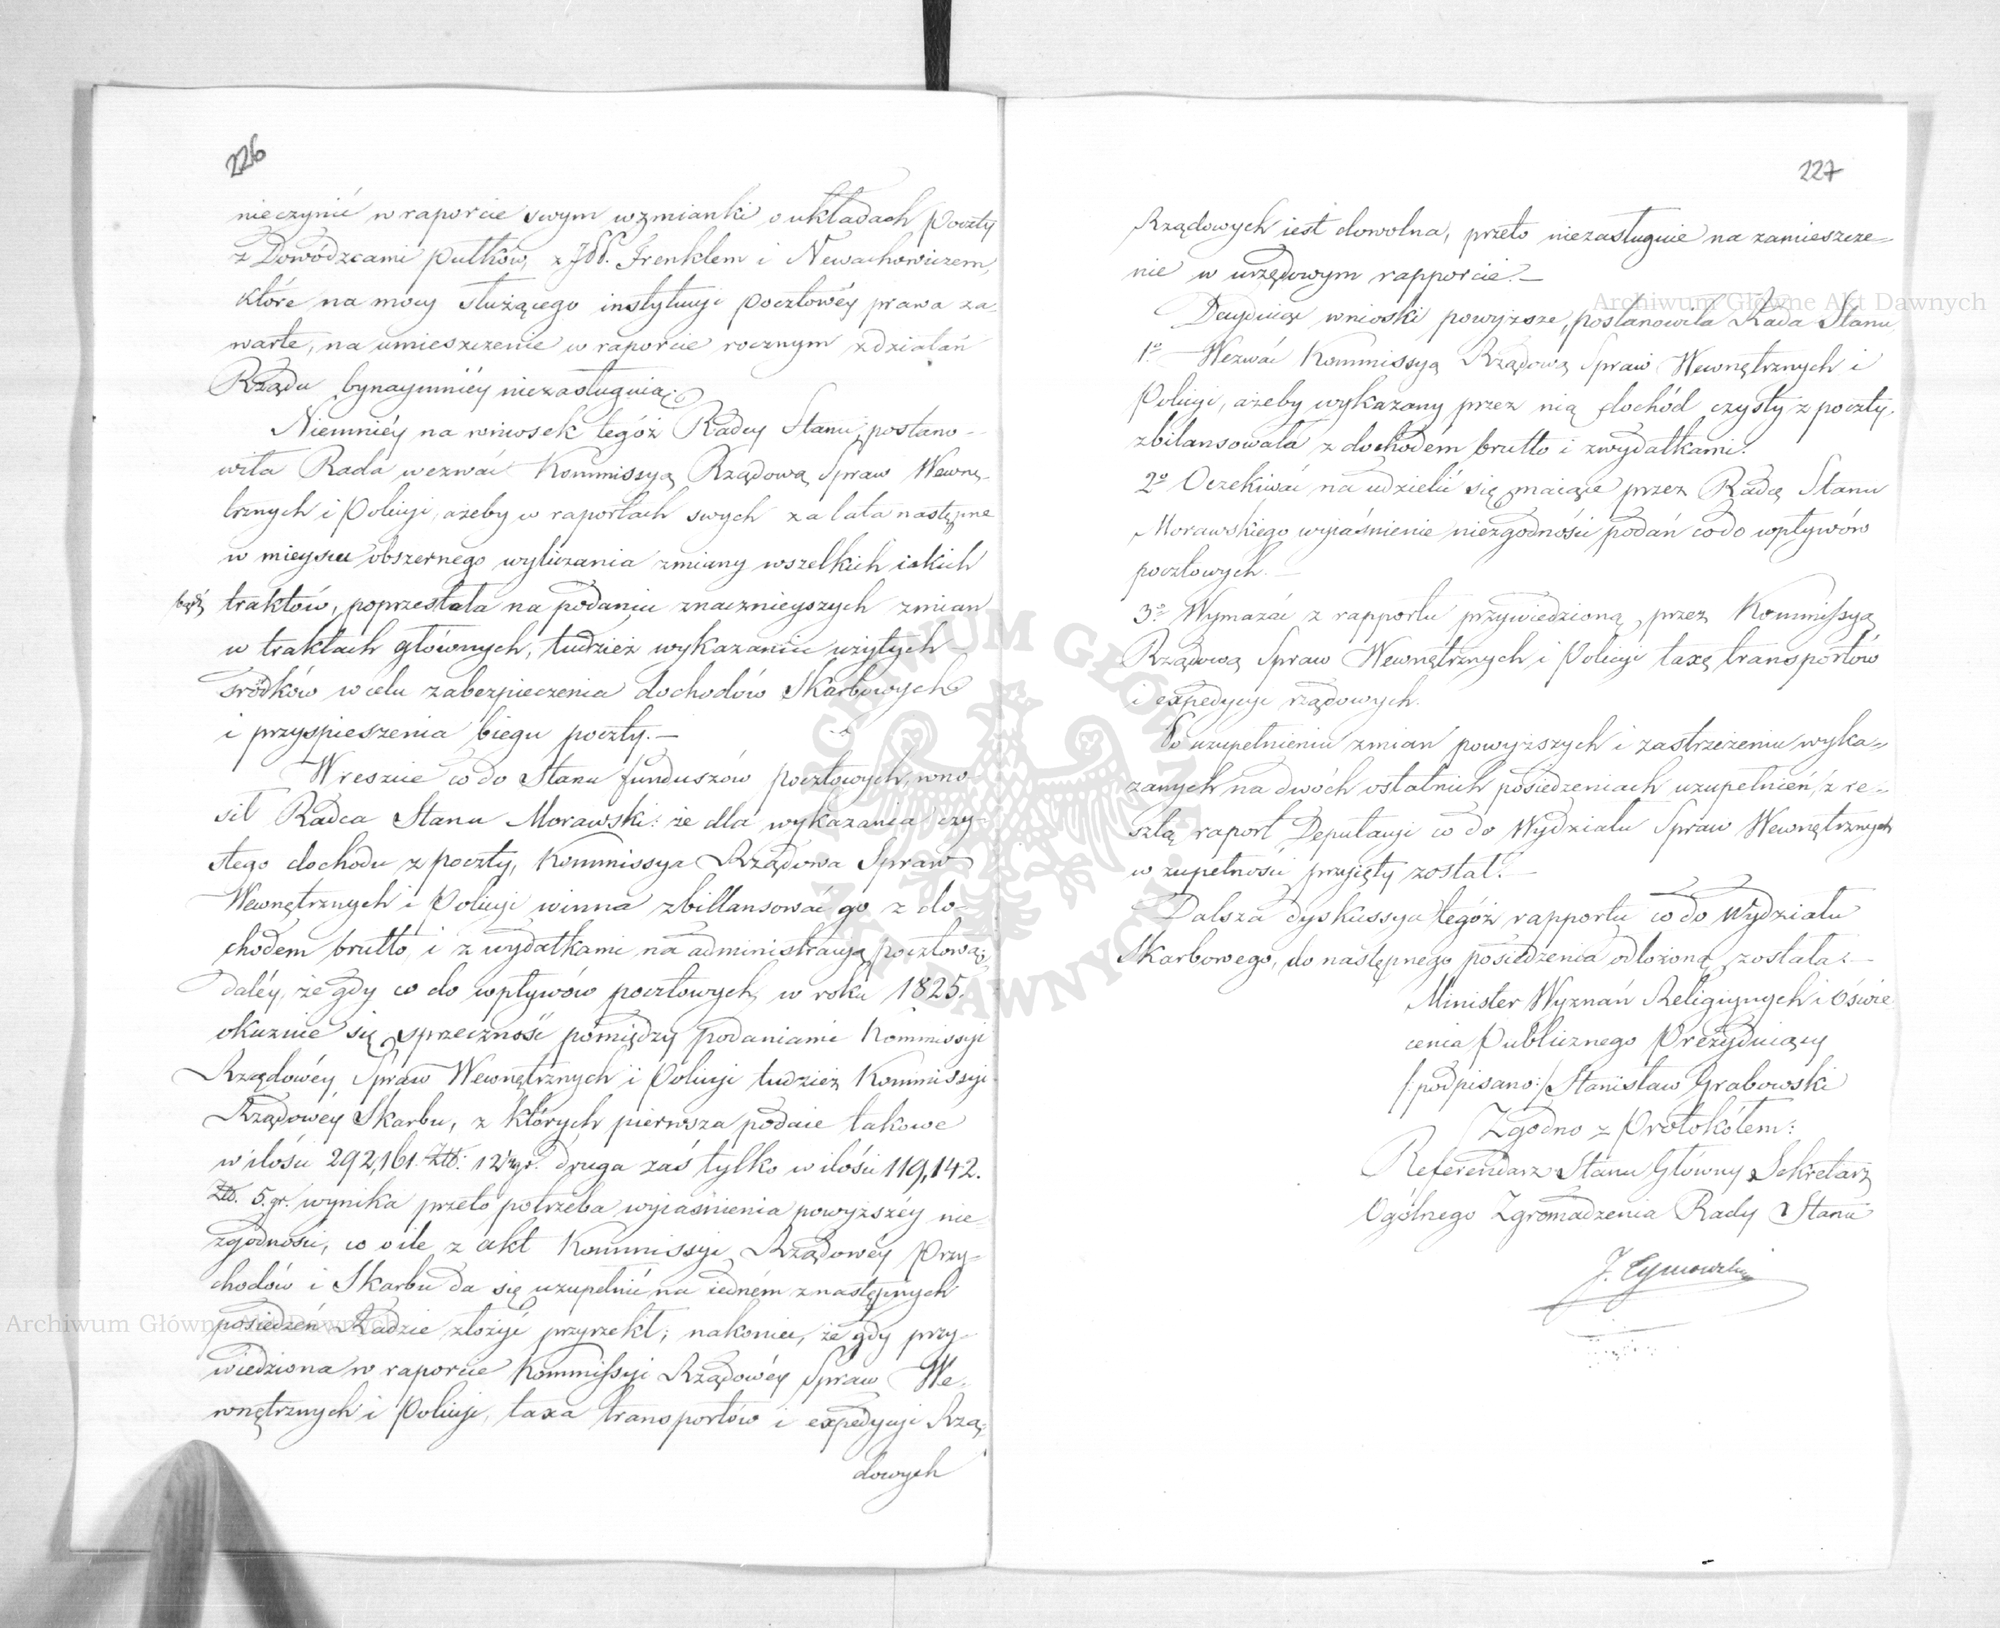 226
nieczynić w raporcie swym wzmianki o układach Poczty
z Dowódzcami Pułków, z JPP. Frenklem i Newachowiczem,
które na mocy służącego instytucyi pocztowéy prawa za-
warte, na umieszczenie w raporcie rocznym z działań
Rządu bynaymniéy niezasługuią.
Niemniéy na wniosek tegóż Radcy Stanu, postano-
wiła Rada wezwać Kommissyą Rządową Spraw Wewnę-
trznych i Policyi, ażeby w raportach swych za lata następne
w mieyscu obszernego wyliczania zmiany wszelkich iakich
bądź traktów, poprzestała na podaniu znacznieyszych zmian
w traktach głównych, tudzież wykazaniu użytych
śródków w celu zabezpieczenia dochodów Skarbowych
i przyspieszenia biegu poczty.—
Wreszcie co do Stanu funduszów pocztowych, wno-
sił Radca Stanu Morawski: że dla wykazania czy-
stego dochodu z poczty, Kommissya Rządowa Spraw
Wewnętrznych i Policyi winna zbillansować go z do-
chodem brutto, i z wydatkami na administracyą pocztową;
daléy, że gdy co do wpływów pocztowych, w roku 1825.
okazuie się sprzeczność pomiędzy podaniami Kommissyi
Rządowéy Spraw Wewnętrznych i Policyi tudzież Kommissyi
Rządowéy Skarbu, z których pierwsza podaie takowe
w ilości 292,161. Złł: 12½gr. druga zaś tylko w ilości 119,142.
Złł. 5. gr. wynika przeto potrzeba wyiaśnienia powyższéy nie-
zgodności, co o ile z akt Kommissyi Rządowéy Przy-
chodów i Skarbu da się uzupełnić na iedném z następnych
posiedzeń Radzie złożyć przyrzekł; nakoniec, że gdy przy-
wiedziona w raporcie Kommissyi Rządowéy Spraw We-
wnętrznych i Policyi, taxa transportów i expedycyi Rzą-
dowych
227
Rządowych iest dowolna, przeto niezasługuie na zamieszcze-
nie w urzędowym rapporcie.—
Decyduiąc wnioski powyższe, postanowiła Rada Stanu
1º Wezwać Kommissyą Rządową Spraw Wewnętrznych i
Policyi, ażeby wykazany przez nią dochód czysty z poczty,
zbilansowała z dochodem brutto i z wydatkami.
2º Oczekiwać na udzielić się maiące przez Radcę Stanu
Morawskiego wyiaśnienie niezgodności podań co do wpływów
pocztowych.—
3º Wymazać z rapportu przywiedzioną przez Kommissyą
Rządową Spraw Wewnętrznych i Policyi taxę transportów
i expedycyi rządowych.
Po uzupełnieniu zmian powyższych i zastrzeżeniu wyka-
zanych na dwóch ostatnich posiedzeniach uzupełnień, z re-
sztą raport Deputacyi co do Wydziału Spraw Wewnętrznych
w zupełności przyięty został.—
Dalsza dyskussya tegóż rapportu co do Wydziału
Skarbowego, do następnego posiedzenia odłożoną została.—
Minister Wyznań Religiynych i Oświe-
cenia Publicznego Prezyduiący
/:podpisano:/ Stanisław Grabowski
Zgodno z Protokółem:
Referendarz Stanu Główny Sekretarz
Ogólnego Zgromadzenia Rady Stanu
J. Tymowski
Archiwum Główne Akt Dawnych
Archiwum Główne Akt Dawnych
ARCHIWUM GŁÓWNE AKT DAWNYCH